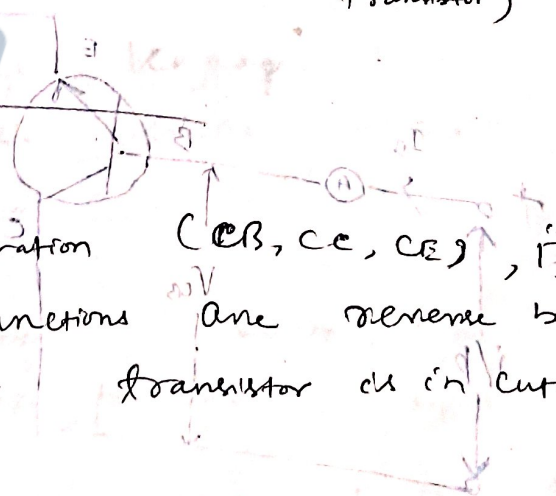 transistor)
ration (CB, CC, CE),
nctions are reverse b
transistor is in cut